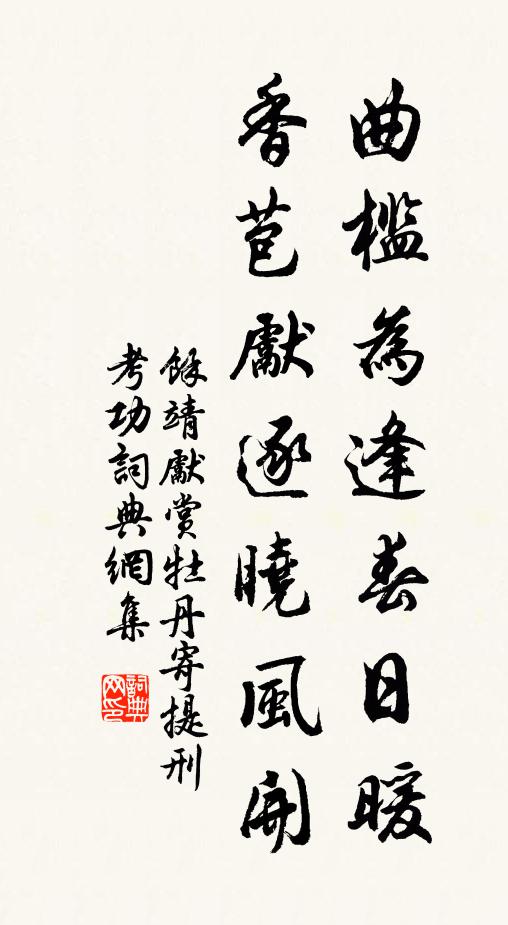 曲槛為逢春日暖
香苞獻逐曉風開
餘靖獻賞牡丹寄提刑
考功詞典網集
詞典网印